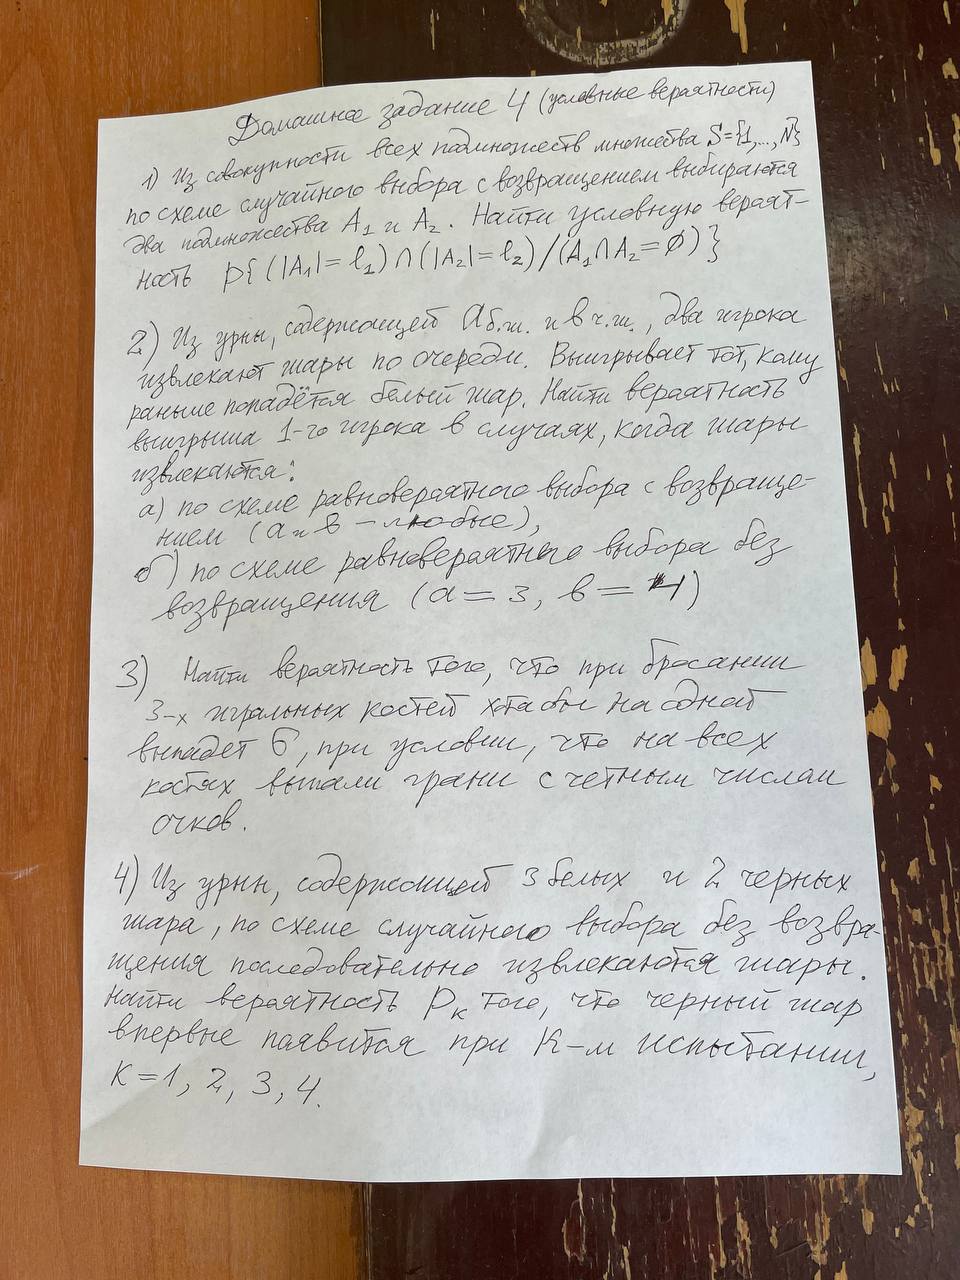 Домашнее задание 4 (условные вероятности)
1) Из совокупности всех подмножеств множества S={1,...,N}
по схеме случайного выбора с возвращением выбираются
два подмножества A₁ и A₂. Найти условную вероят-
ность P{(|A₁|=l₁)∩(|A₂|=l₂)/(A₁∩A₂=∅)}
2) Из урны, содержащей a б.ш. и в ч.ш., два игрока
извлекают шары по очереди. Выигрывает тот, кому
раньше попадётся белый шар. Найти вероятность
выигрыша 1-го игрока в случаях, когда шары
извлекаются:
а) по схеме равновероятного выбора с возвраще-
нием (a и в – любые),
б) по схеме равновероятного выбора без
возвращения (a=3, в=4)
3) Найти вероятность того, что при бросании
3-х игральных костей хотя бы на одной
выпадет 6, при условии, что на всех
костях выпали грани с четным числом
очков.
4) Из урны, содержащей 3 белых и 2 черных
шара, по схеме случайного выбора без возвра-
щения последовательно извлекаются шары.
Найти вероятность Pₖ того, что черный шар
впервые появится при К-м испытании,
К=1, 2, 3, 4.